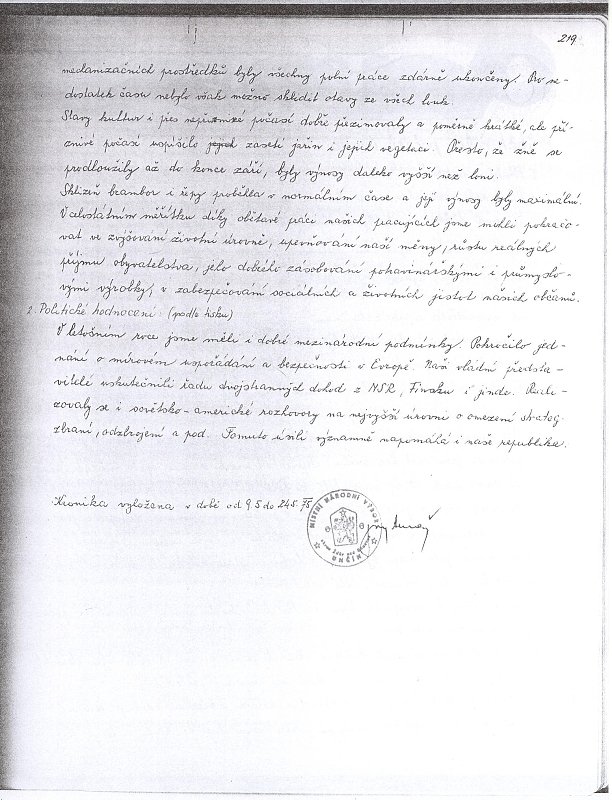 219
mechanizačních prostředků byly všechny polní práce zdárně ukončeny. Pro ne-
dostatek času nebylo však možno sklidit otavy ze všech luk.
Stavy kultur i přes nepříznivé počasí dobře přezimovaly a poměrně krátké, ale pří-
znivé počasí uspíšilo zasetí jařin i jejich vegetaci. Přesto, že žně se
prodloužily až do konce září, byly výnosy daleko vyšší než loni.
Sklizeň brambor i řepy proběhla v normálním čase a její výnosy byly maximální.
V celostátním měřítku díky obětavé práci našich pracujících jsme mohli pokračo-
vat ve zvyšování životní úrovně, upevňování naší měny, růstu reálných
příjmů obyvatelstva, jeho dobrého zásobování potravinářskými i průmyslo-
vými výrobky, v zabezpečování sociálních a životních jistot našich občanů.
2. Politické hodnocení: (podle tisku)
V letošním roce jsme měli i dobré mezinárodní podmínky. Pokročilo jed-
nání o mírovém uspořádání a bezpečnosti v Evropě. Naši vládní předsta-
vitelé uskutečnili řadu dvojstranných dohod z NSR, Finsku i jinde. Reali-
zovaly se i sovětsko-americké rozhovory na nejvyšší úrovni o omezení strateg.
zbraní, odzbrojení a pod. Tomuto úsilí významně napomáhá i naše republika.
Kronika vyložena v době od 9.5 do 24.5. 75
MÍSTNÍ NÁRODNÍ VÝBOR